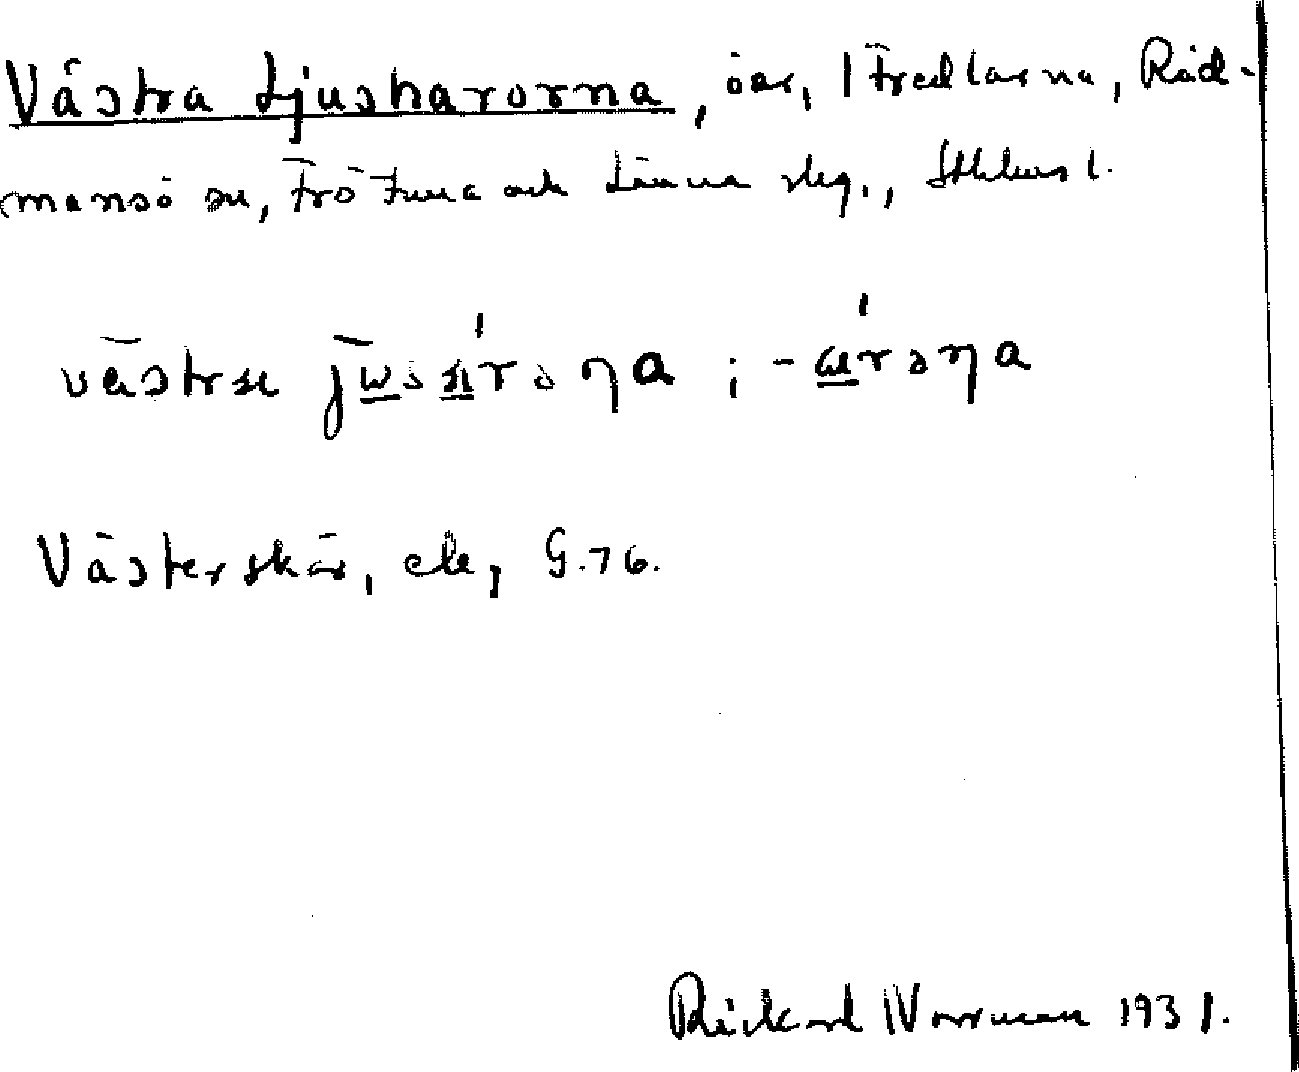 Västra Ljusharorna, öar, i Fredlarna, Råd-
mansö sn, Frötuna och Länna skg., Sthlms l.
västrɶ jɯs ́rəƞa ; - ́rəƞa
Västerskär, ek, G.76.
Rickard Norrman 1931.